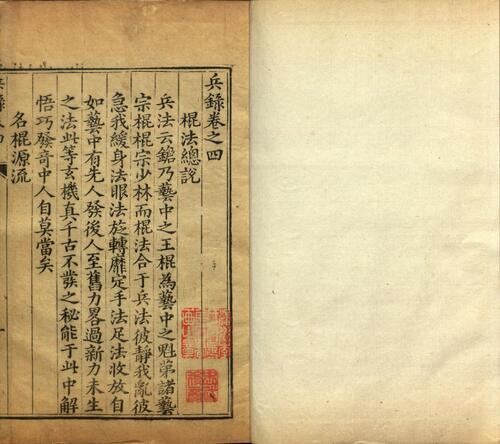 兵錄卷之四
棍法總說
兵法云鎗乃藝中之王棍為藝中之魁第諸藝
宗棍棍宗少林而棍法合于兵法彼靜我亂彼
急我緩身法眼法旋轉靡定手法足法收放自
如藝中有先人發後人至舊力畧過新力未生
之法此等玄機真千古不發之秘能于此中解
悟巧發奇中人自莫當矣
名棍源流